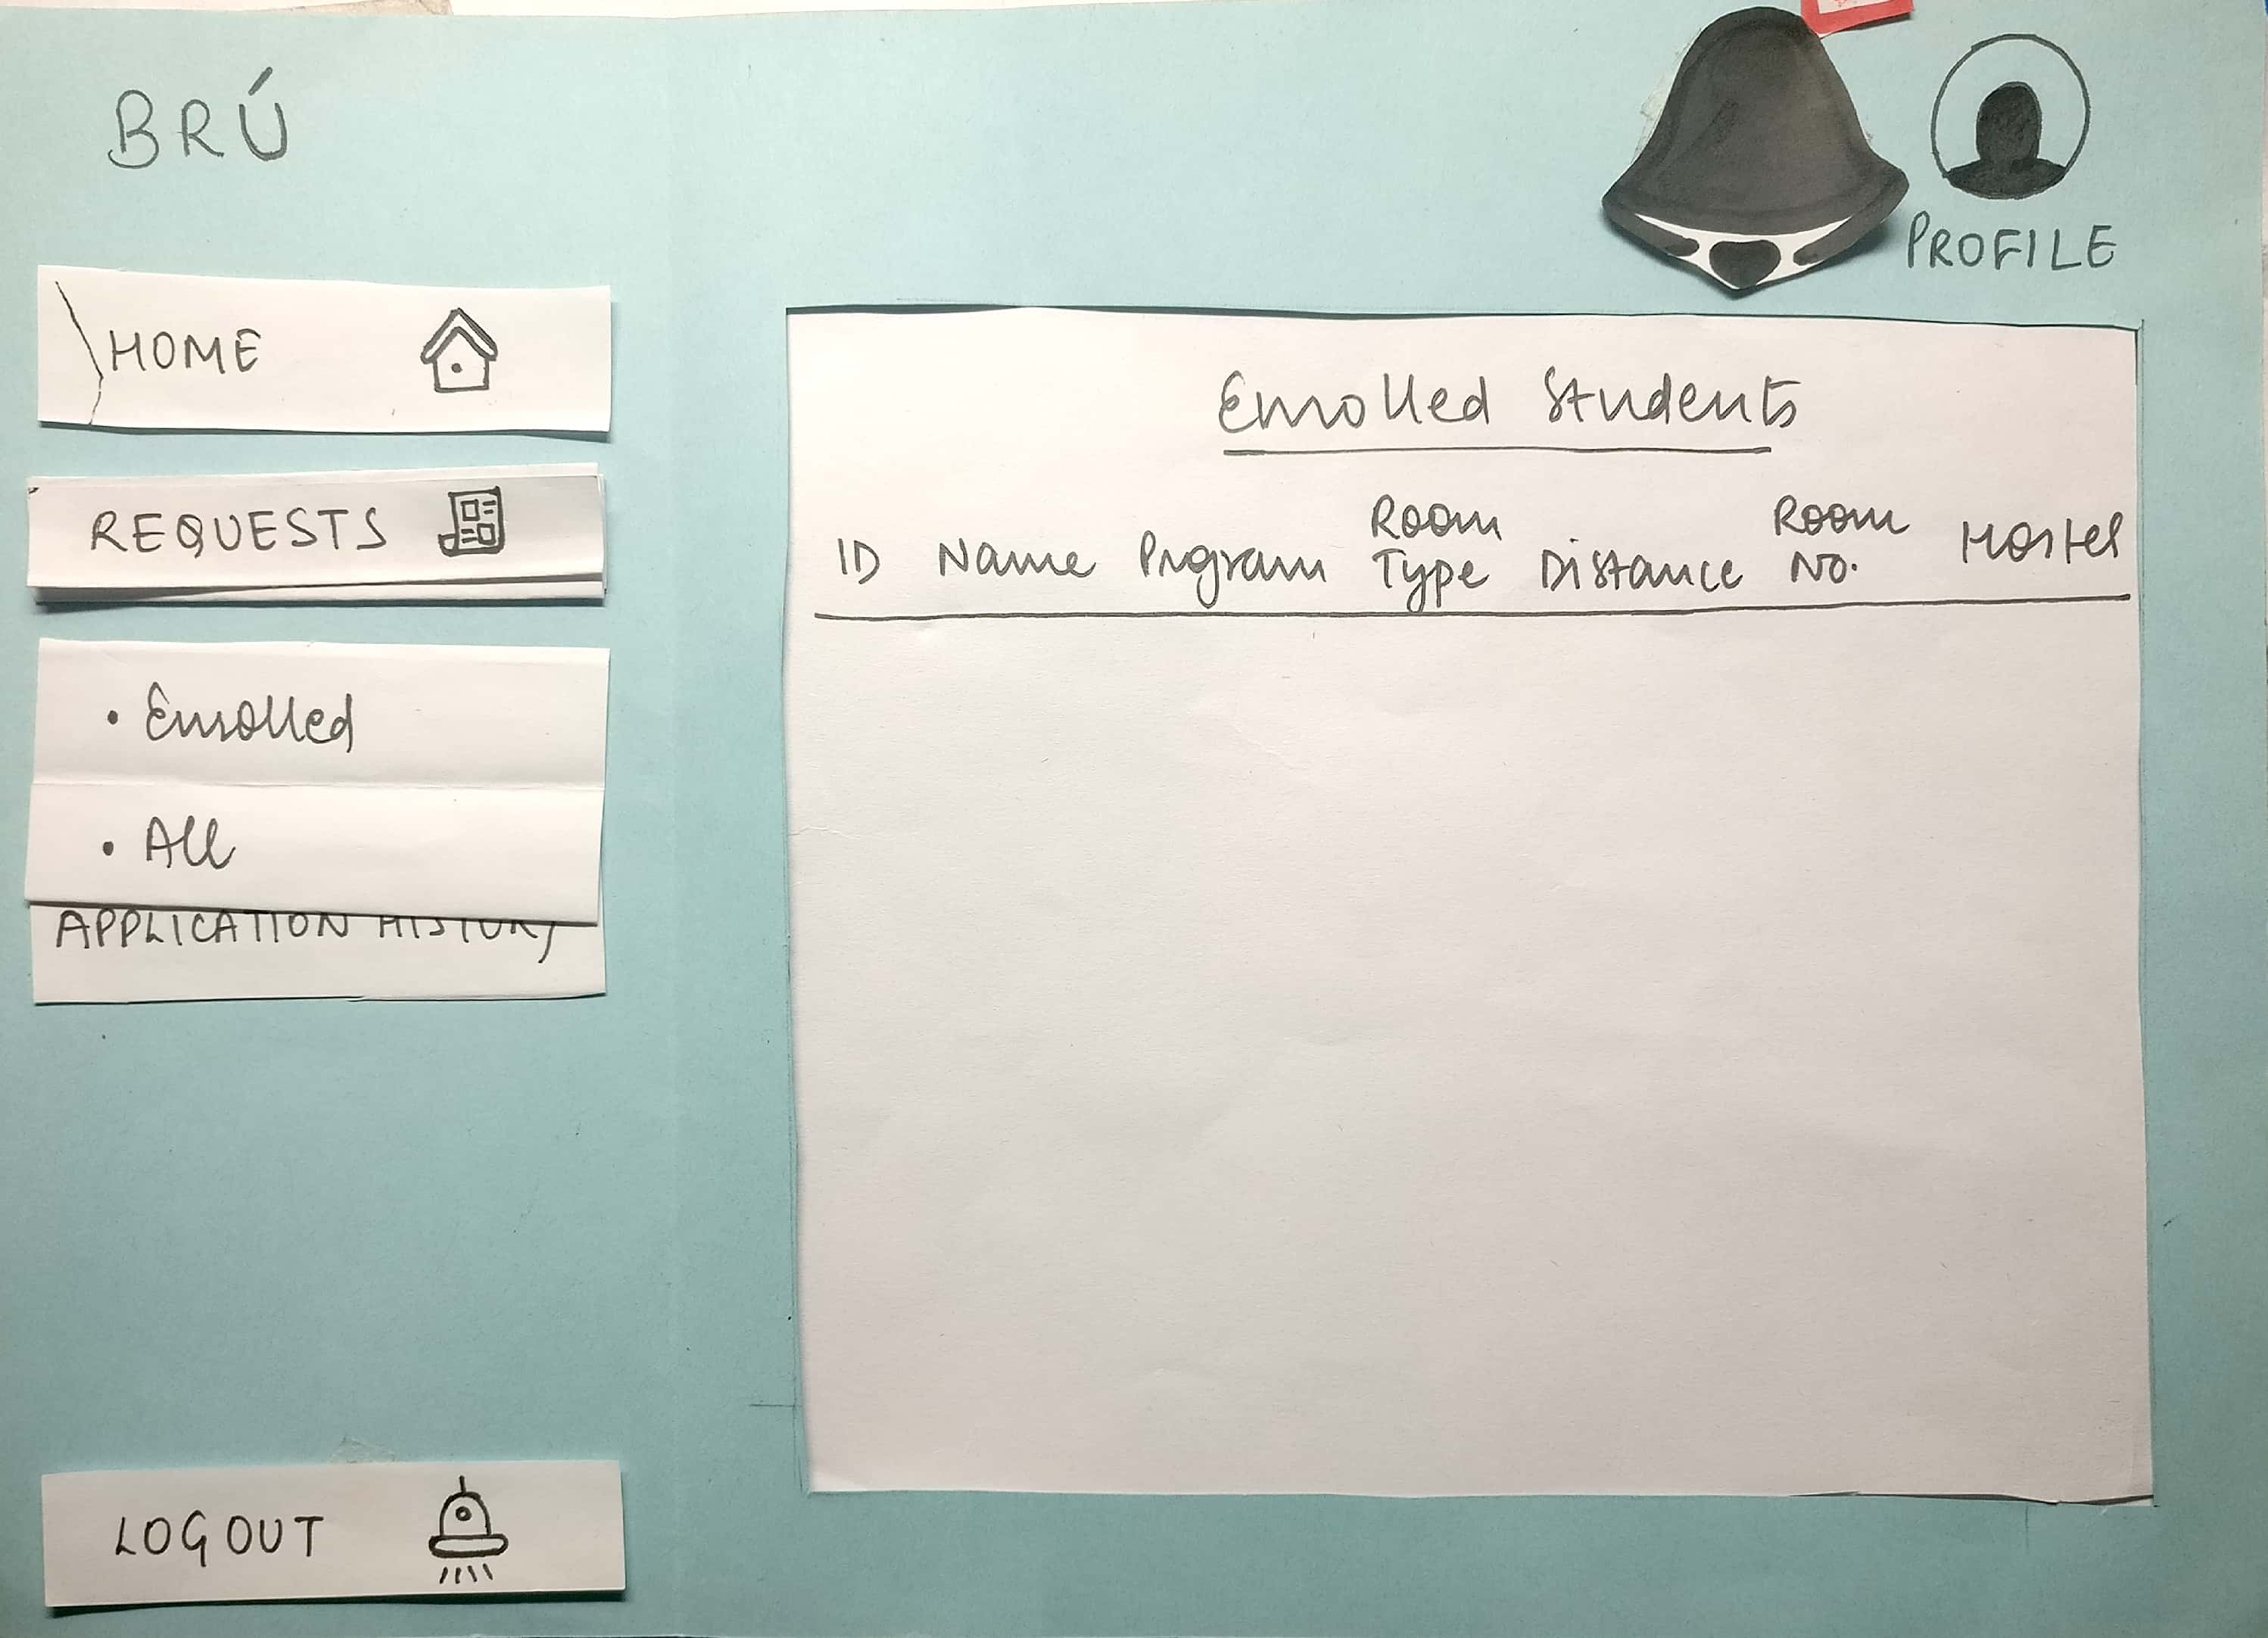 BRÚ
PROFILE
HOME
REQUESTS
• Enrolled
• All
APPLICATION HISTORY
LOGOUT
Enrolled Students
ID Name Program Room Type Distance Room No. Hostel